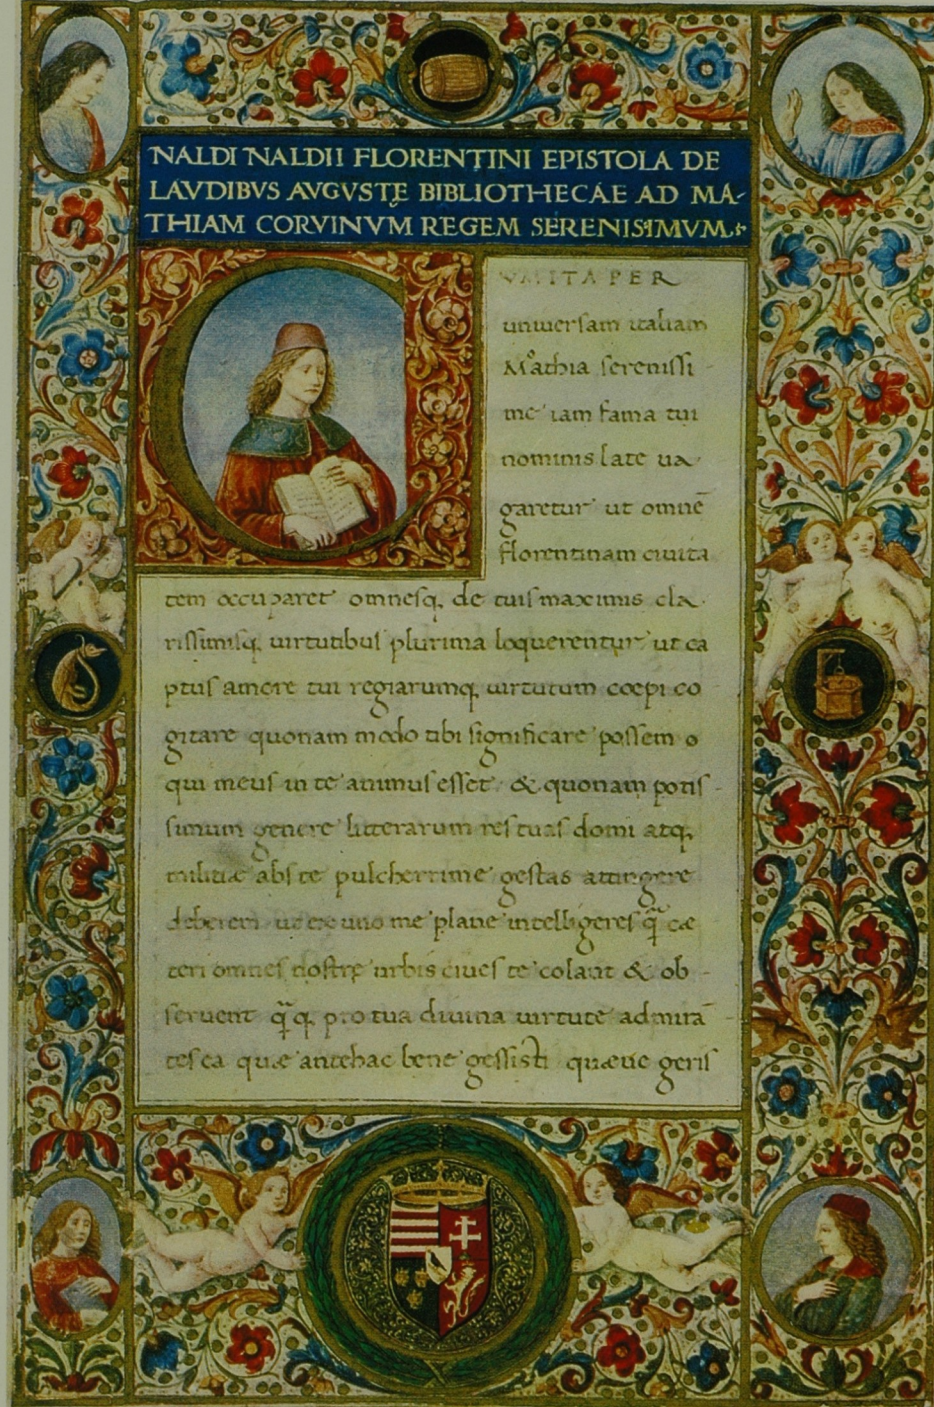 NALDI NALDII FLORENTINI EPISTOLA DE
LAVDIBVS AVGVSTĘ BIBLIOTHECAE AD MA-
THIAM CORVINVM REGEM SERENISIMVM.
VM ITA PER
universam italiam
Mathia serenissi-
me iam fama tui
nominis late va
garetur ut omnē
florentinam civita
tem occuparet omnesq; de tuis maximis cla-
rissimisq; virtutibus plurima loquerentur ut ca
ptus amore tui regiarumq; virtutum coepi co
gitare quonam modo tibi significare possem o
qui meus in te animus esset & quonam potis-
simum genere litterarum res tuas domi atq;
militiæ abs te pulcherrime gestas attingere
deberem ut ex uno me plane intelligeres q̃ cæ
teri omnes nostrę urbis cives te colant & ob-
servent q̃q; pro tua divina virtute admirā
tes ea quæ antehac bene gessisti quæve geris